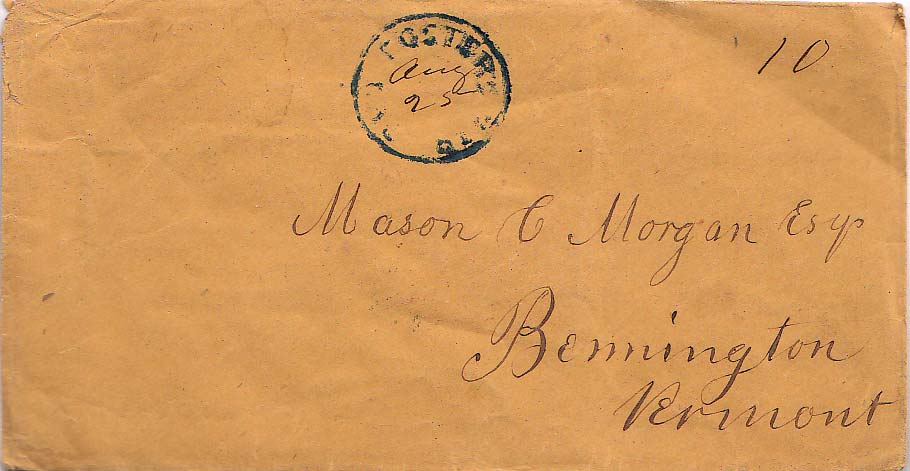 10
FOSTER
Aug
25
Mason C Morgan Esqr
Bennington
Vermont